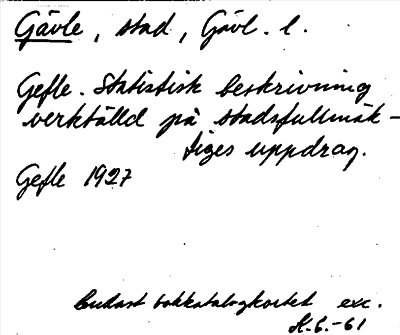 Gävle, stad, Gävl. l.
Gefle. Statistisk beskrivning
verkställd på stadsfullmäk-
tiges uppdrag.
Gefle 1927
Endast bokkatalogkortet exc.
H.6.-61